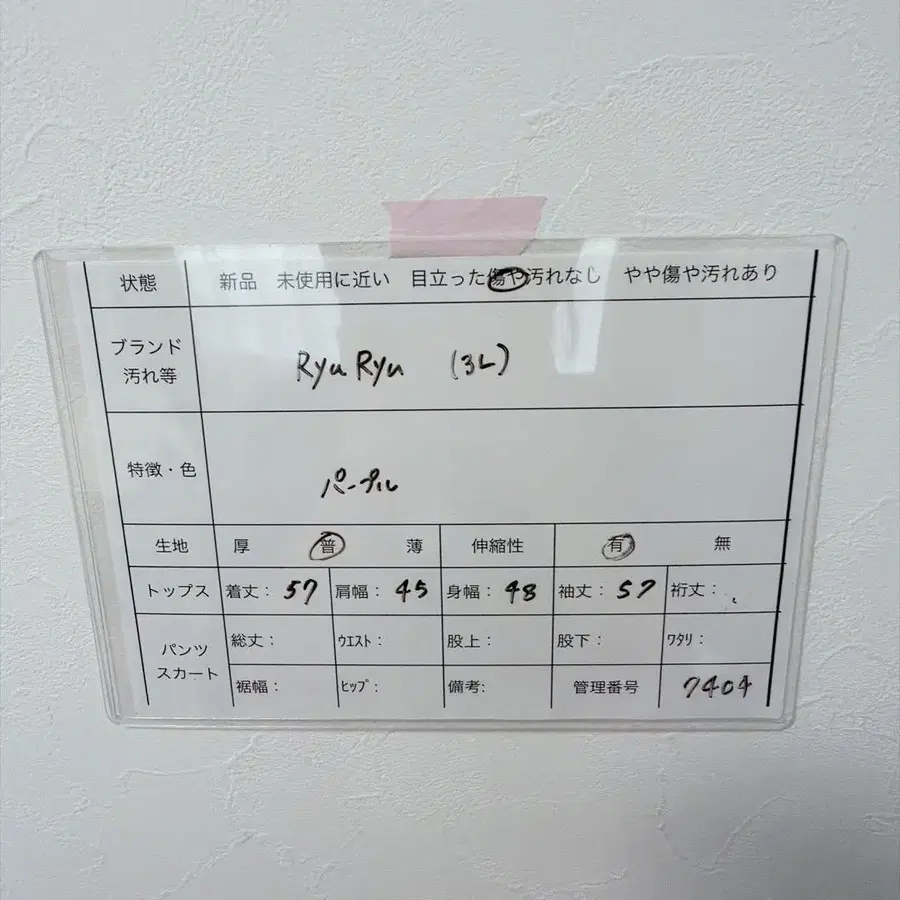 状態 新品 未使用に近い 目立った傷や汚れなし やや傷や汚れあり
ブランド
汚れ等
RyuRyu (3L)
特徴・色 パープル
生地 厚 普 薄 伸縮性 有 無
トップス 着丈： 57 肩幅： 45 身幅： 48 袖丈： 57 裄丈：
パンツ
スカート
総丈： ｳｴｽﾄ： 股上： 股下： ﾜﾀﾘ：
裾幅： ﾋｯﾌﾟ： 備考: 管理番号 7404